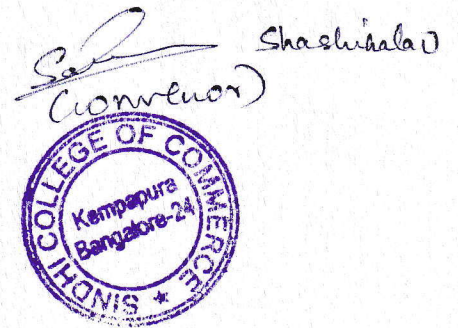 Shashikala U
(Convenor)
SINDHI COLLEGE OF COMMERCE
Kempapura
Bangalore-24